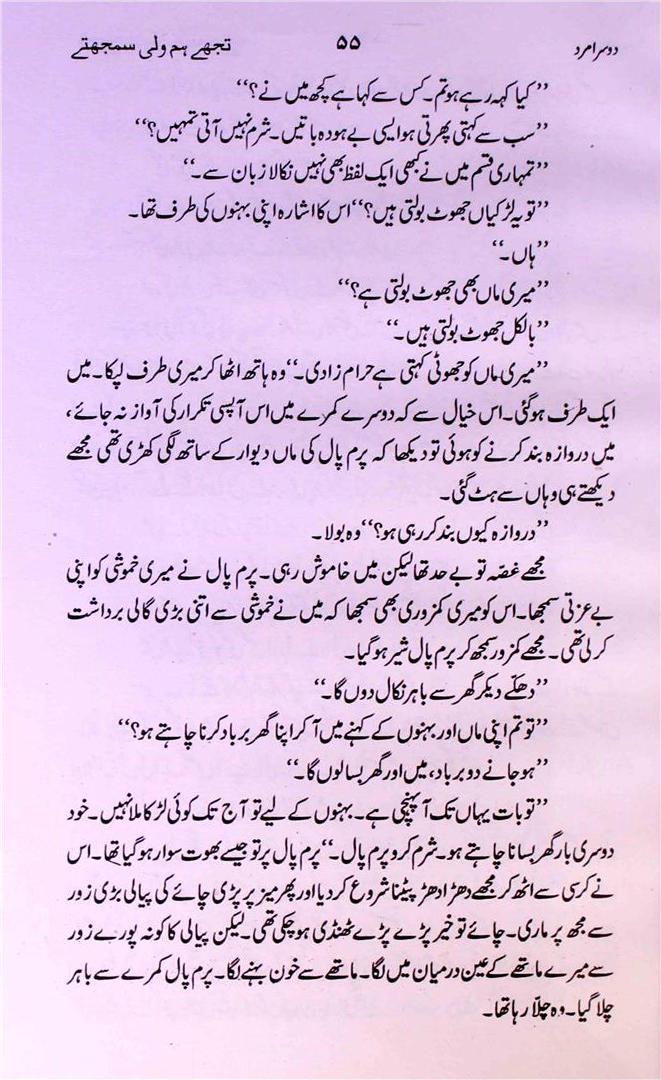 دوسرا مرد ۵۵ تجھے ہم ولی سمجھتے
’’کیا کہہ رہے ہو تم۔ کس سے کہا ہے کچھ میں نے؟‘‘
’’سب سے کہتی پھرتی ہو ایسی بے ہودہ باتیں۔ شرم نہیں آتی تمہیں؟‘‘
’’تمہاری قسم میں نے کبھی ایک لفظ بھی نہیں نکالا زبان سے۔‘‘
’’تو یہ لڑکیاں جھوٹ بولتی ہیں؟‘‘ اس کا اشارہ اپنی بہنوں کی طرف تھا۔
’’ہاں۔‘‘
’’میری ماں بھی جھوٹ بولتی ہے؟‘‘
’’بالکل جھوٹ بولتی ہیں۔‘‘
’’میری ماں کو جھوٹی کہتی ہے حرام زادی۔‘‘ وہ ہاتھ اٹھا کر میری طرف لپکا۔ میں
ایک طرف ہوگئی۔ اس خیال سے کہ دوسرے کمرے میں اس آپسی تکرار کی آواز نہ جائے،
میں دروازہ بند کرنے کو ہوئی تو دیکھا کہ پرم پال کی ماں دیوار کے ساتھ لگی کھڑی تھی مجھے
دیکھتے ہی وہاں سے ہٹ گئی۔
’’دروازہ کیوں بند کر رہی ہو؟‘‘ وہ بولا۔
مجھے غصّہ تو بے حد تھا لیکن میں خاموش رہی۔ پرم پال نے میری خموشی کو اپنی
بے عزتی سمجھا۔ اس کو میری کمزوری بھی سمجھا کہ میں نے خموشی سے اتنی بڑی گالی برداشت
کر لی تھی۔ مجھے کمزور سمجھ کر پرم پال شیر ہو گیا۔
’’دھکّے دیکر گھر سے باہر نکال دوں گا۔‘‘
’’تو تم اپنی ماں اور بہنوں کے کہنے میں آ کر اپنا گھر برباد کرنا چاہتے ہو؟‘‘
’’ہو جانے دو برباد، میں اور گھر بسالوں گا۔‘‘
’’تو بات یہاں تک آ پہنچی ہے۔ بہنوں کے لیے تو آج تک کوئی لڑکا ملا نہیں۔ خود
دوسری بار گھر بسانا چاہتے ہو۔ شرم کرو پرم پال۔‘‘ پرم پال پر تو جیسے بھوت سوار ہوگیا تھا۔ اس
نے کرسی سے اٹھ کر مجھے دھڑا دھڑ پیٹنا شروع کر دیا اور پھر میز پر پڑی چائے کی پیالی بڑی زور
سے مجھ پر ماری۔ چائے تو خیر پڑے پڑے ٹھنڈی ہو چکی تھی۔ لیکن پیالی کا کونہ پورے زور
سے میرے ماتھے کے عین درمیان میں لگا۔ ماتھے سے خون بہنے لگا۔ پرم پال کمرے سے باہر
چلا گیا۔ وہ چلّا رہا تھا۔